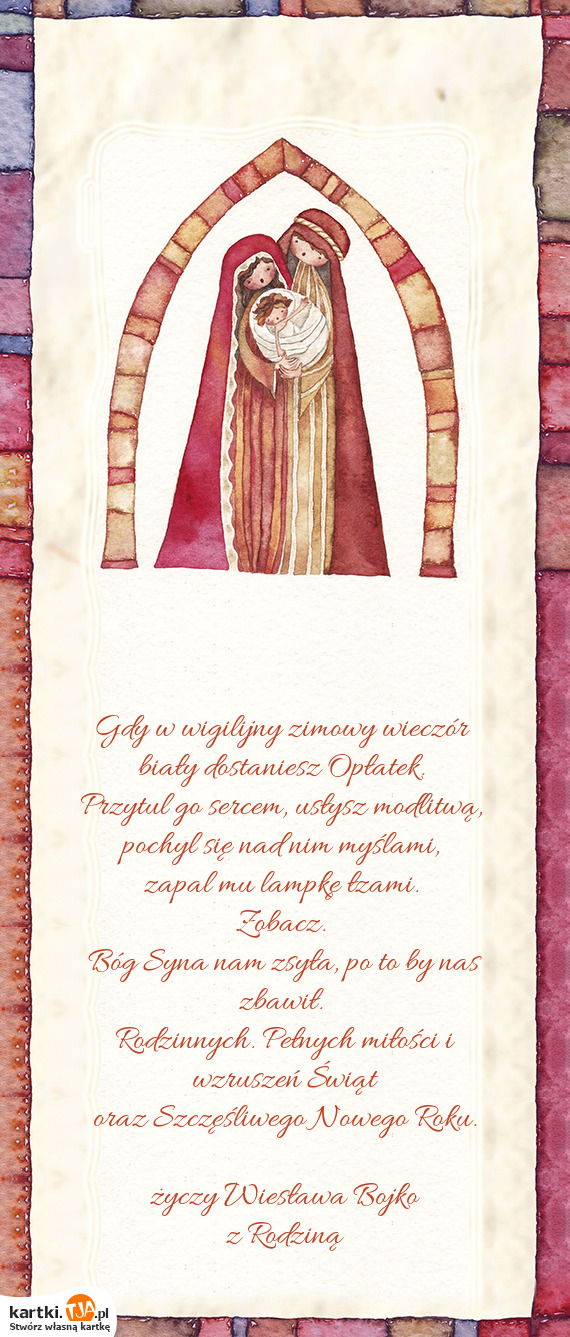 Gdy w wigilijny zimowy wieczór
biały dostaniesz Opłatek.
Przytul go sercem, usłysz modlitwą,
pochyl się nad nim myślami,
zapal mu lampkę łzami.
Zobacz.
Bóg Syna nam zsyła, po to by nas
zbawił.
Rodzinnych. Pełnych miłości i
wzruszeń Świąt
oraz Szczęśliwego Nowego Roku.
życzy Wiesława Bojko
z Rodziną
kartki.TJA.pl
Stwórz własną kartkę